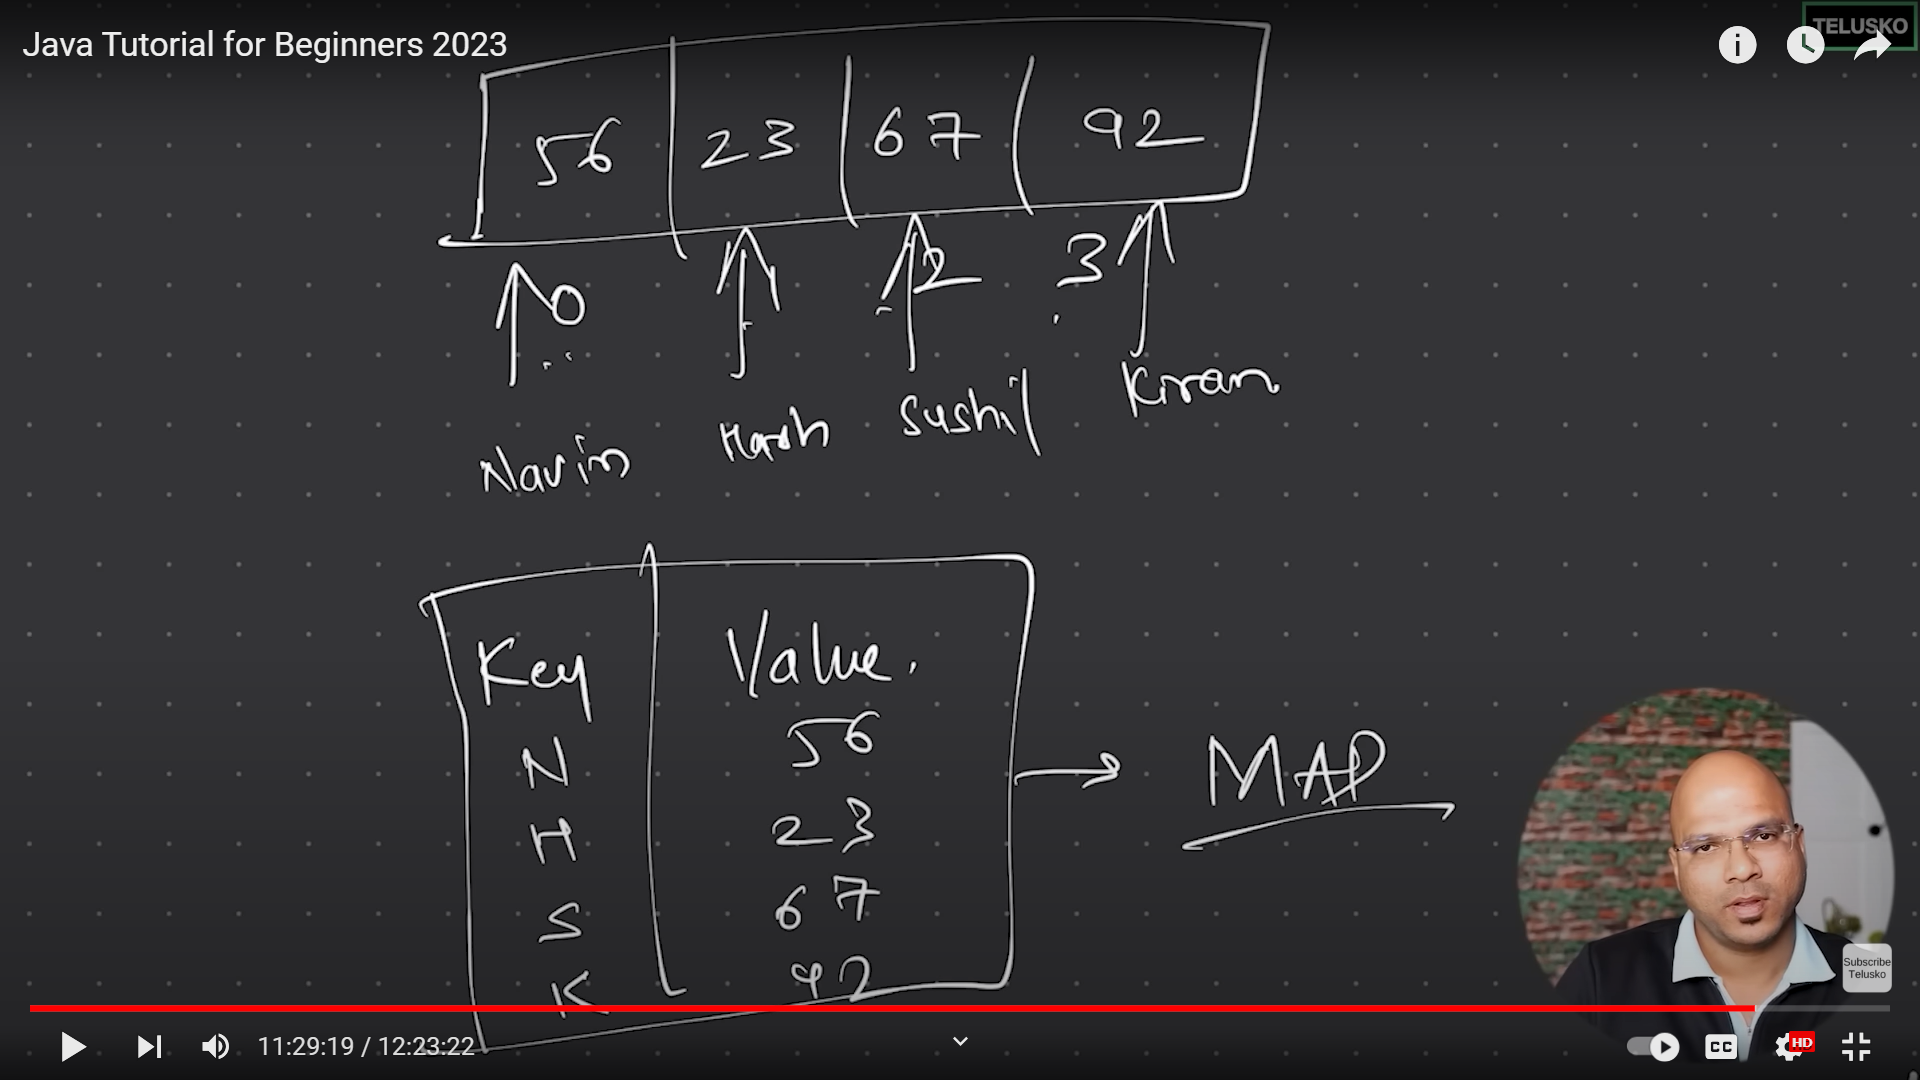 Java Tutorial for Beginners 2023
TELUSKO
56 23 67 92
0 2 3
Navin Harsh Sushil Kiran
Key Value.
N 56
H 23
S 67
K 92
MAP
Subscribe
Telusko
11:29:19 / 12:23:22
CC
HD